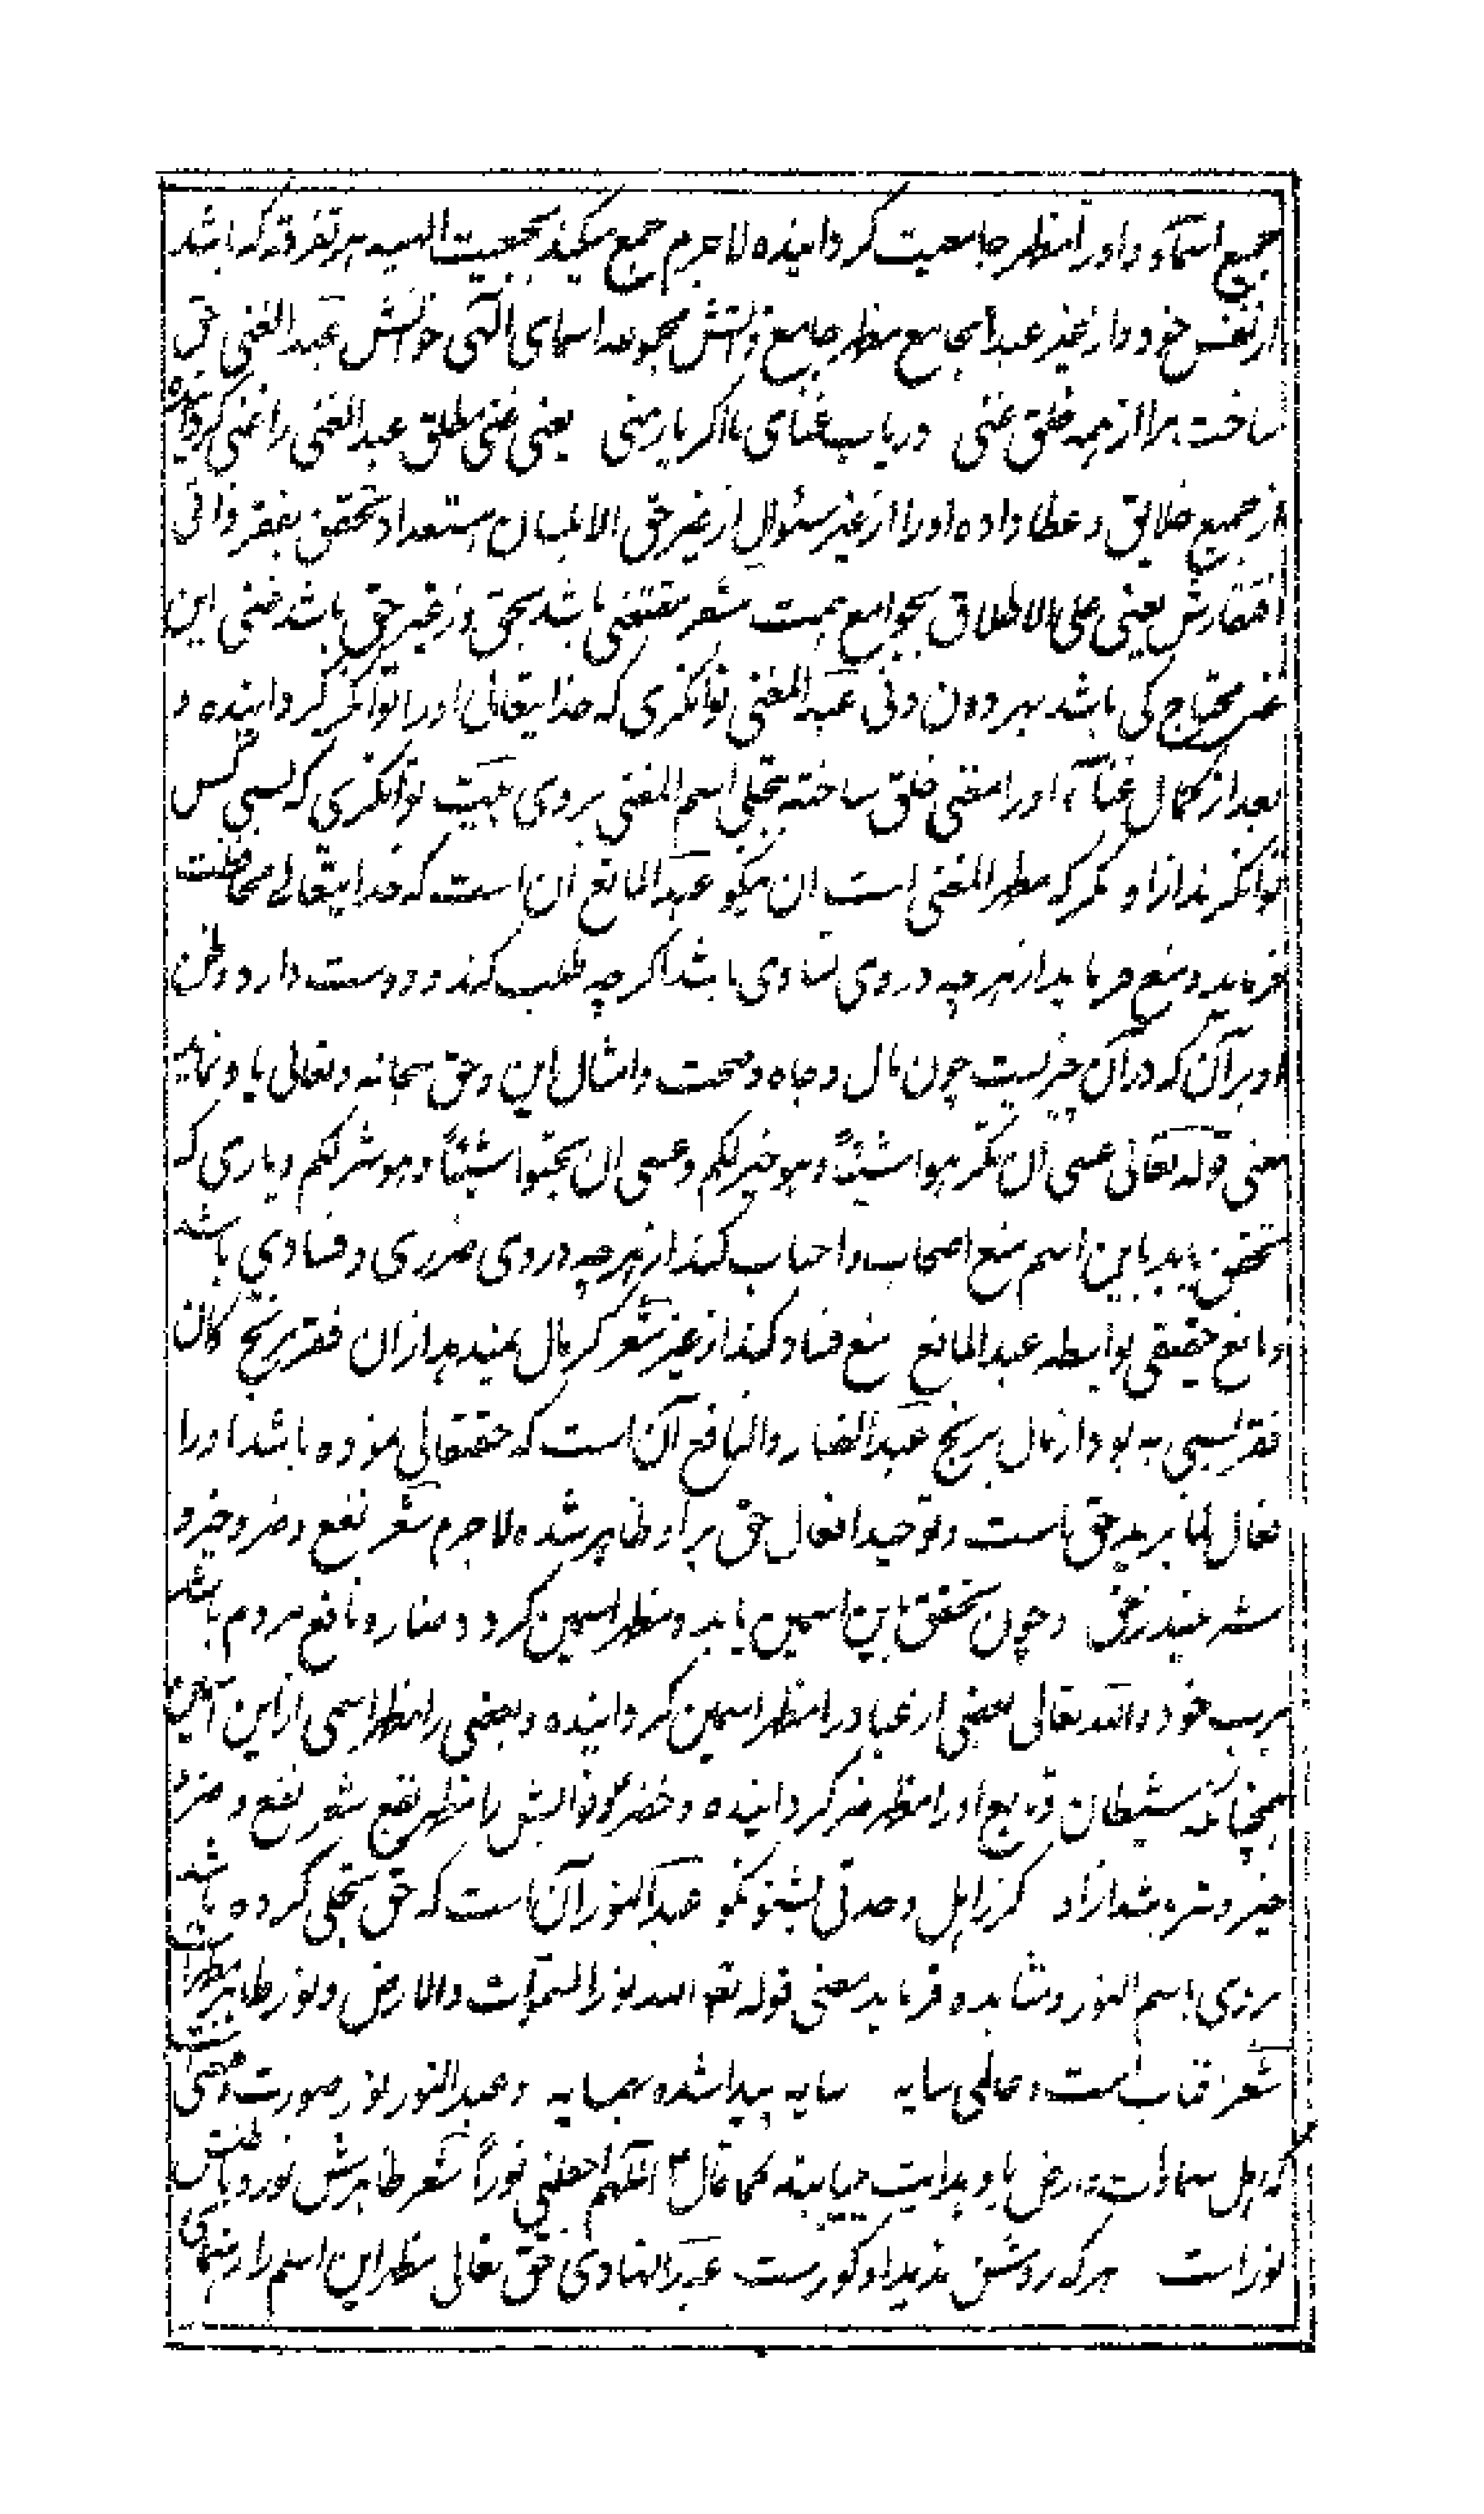 جمیع اسماء و او را مظهر جامعیت گردانیده لاجرم جمع میکند بجمعیت الهیه هر تفرقه که باشد
از نفس خود و از غیر عبد الجامع مظهر جامع ذاتش مجموعه اسمای الهی خوانش عبد الغنی حق
ساخت مرا از همه خلق غنی دریاب غنای ما اگر یار منی یعنی غنی مطلق عبد الغنی را غنی گردانیده
از جمیع خلایق و عطا داده او را از غیر سئوال از غیر حق الا بلسان استعداد تحقق بفقر ذاتی
افتقارش یعنی علی الاطلاق بجوامع همت شعر مفتقی باشد بحق وز غیر حق باشد غنی این
غنی محتاج کی باشد بهر دون و دنی عبد المغنی توانگری که خدایتعالی او را توانگر گردانیده و
بعد از کمال غناء او را مغنی خلق ساخته بتجلی اسم المغنی بر وی بیت توانگری که بسی کس
توانگرند ازو مگر که مظهر المغنی است ان نیکو عبد المانع ان است که خدایتعالی محافظت
فرماید و منع فرماید از هرچه در وی فساوی باشد اگر چه طلب کند و دوست دارد و ظن
او بر آن که در آن خیریست چون مال و جاه و صحت و امثال این و حق سبحانه و تعالی باو نماید
معنی قوله تعالی عسی ان تکرهوا شیئاً و هو خیر لکم و عسی ان تحبّوا شیئاً و هو شر لکم و یاری که
تحقق یابد باین اسم منع اصحاب و احباب کند از هرچه در وی ضرری و فسادی باشد
و مانع حقیقی بواسطه عبد المانع منع فساد کند از غیر شعر گر مال نمیدهد از ان فقر مرنج کان
فقر بسی به بود از مال برنج عبد الضار و النافع آن است که حقتعالی نموده باشد او را
فعال لما یرید حق است و توحید افعال حق بر او ظاهر شده لاجرم شعر نفع و ضر و خیر و
شر بیند ز حق و چون تحقق باین اسمین یابد و مظهر اسمین گردد و ضار و نافع مردم باشد
برب خود و الله تعالی بعضی از عباد را مظهر اسمین گردانیده و بعضی را مظهر اسمی ازین اسمین
همچنانکه شیطان و تابع او را مظهر ضر گردانیده و خضر و موافقانش را مظهر نفع شعر نفع و ضر
خیر و شر باشد ازاو گر ز اهل وحدتی بشنو نکو عبد النور آن است که حق تجلی کرده باشد
بر وی باسم النور و مشاهده فرماید معنی قوله تع الله نور السموات و الارض و نور ظاهر
شعر و عالمی سایه سایه پیدا شده بهمسایه و عبد النور نور صورت و معنی
که اهل سماوات و ارض باو هدایت مییابند کما قال ع اللهم اجعلنی نوراً شعر ظاهرش نور و باطنش
نور است هر که روشن ندید او کورست عبد الهادی حق تعالی مظهر این اسم را رهنمای